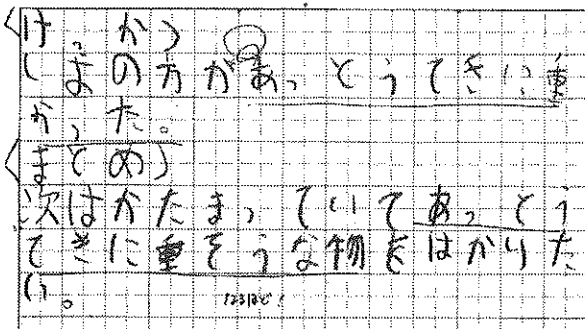 けっかう
しおの方があっとうてきに重
かった。
まとめう
次はかたまっていてあっとう
てきに重そうな物をはかりた
い。